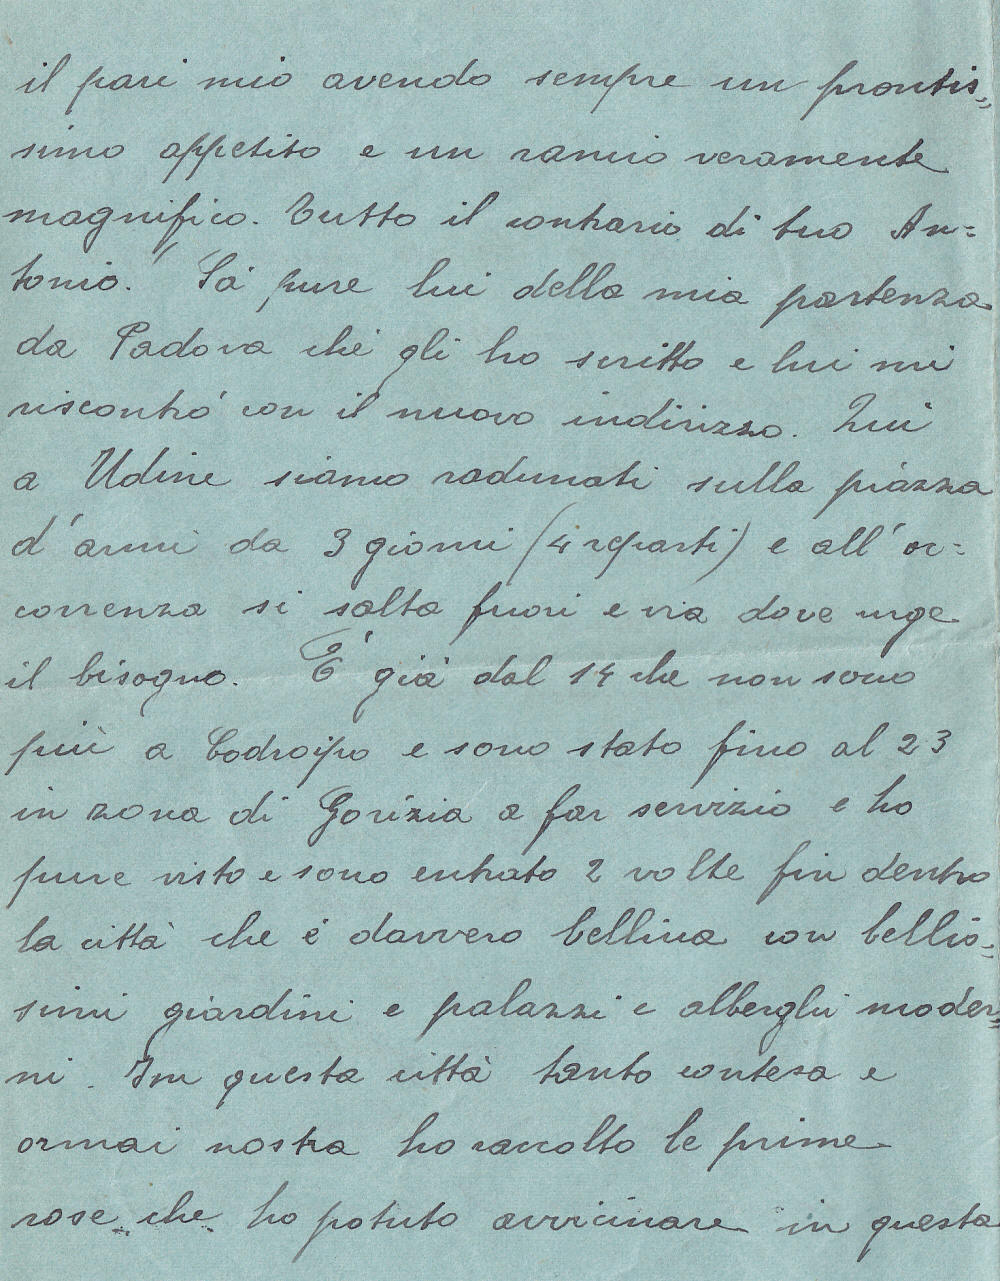 il pari mio avendo sempre un prontis„
simo appetito e un rancio veramente
magnifico. Tutto il contrario di tuo An=
tonio. Sà pure lui della mia partenza
da Padova chè gli ho scritto e lui mi
riscontrò con il nuovo indirizzo. Qui
a Udine siamo radunati sulla piazza
d'armi da 3 giorni (4 reparti) e all'oc=
correnza si salta fuori e via dove urge
il bisogno. È già dal 14 che non sono
più a Codroipo e sono stato fino al 23
in zona di Gorizia a far servizio e ho
pure visto e sono entrato 2 volte fin dentro
la città che è davvero bellina con bellis„
simi giardini e palazzi e alberghi moder„
ni. In questa città tanto contesa e
ormai nostra ho raccolto le prime
rose che ho potuto avvicinare in questa